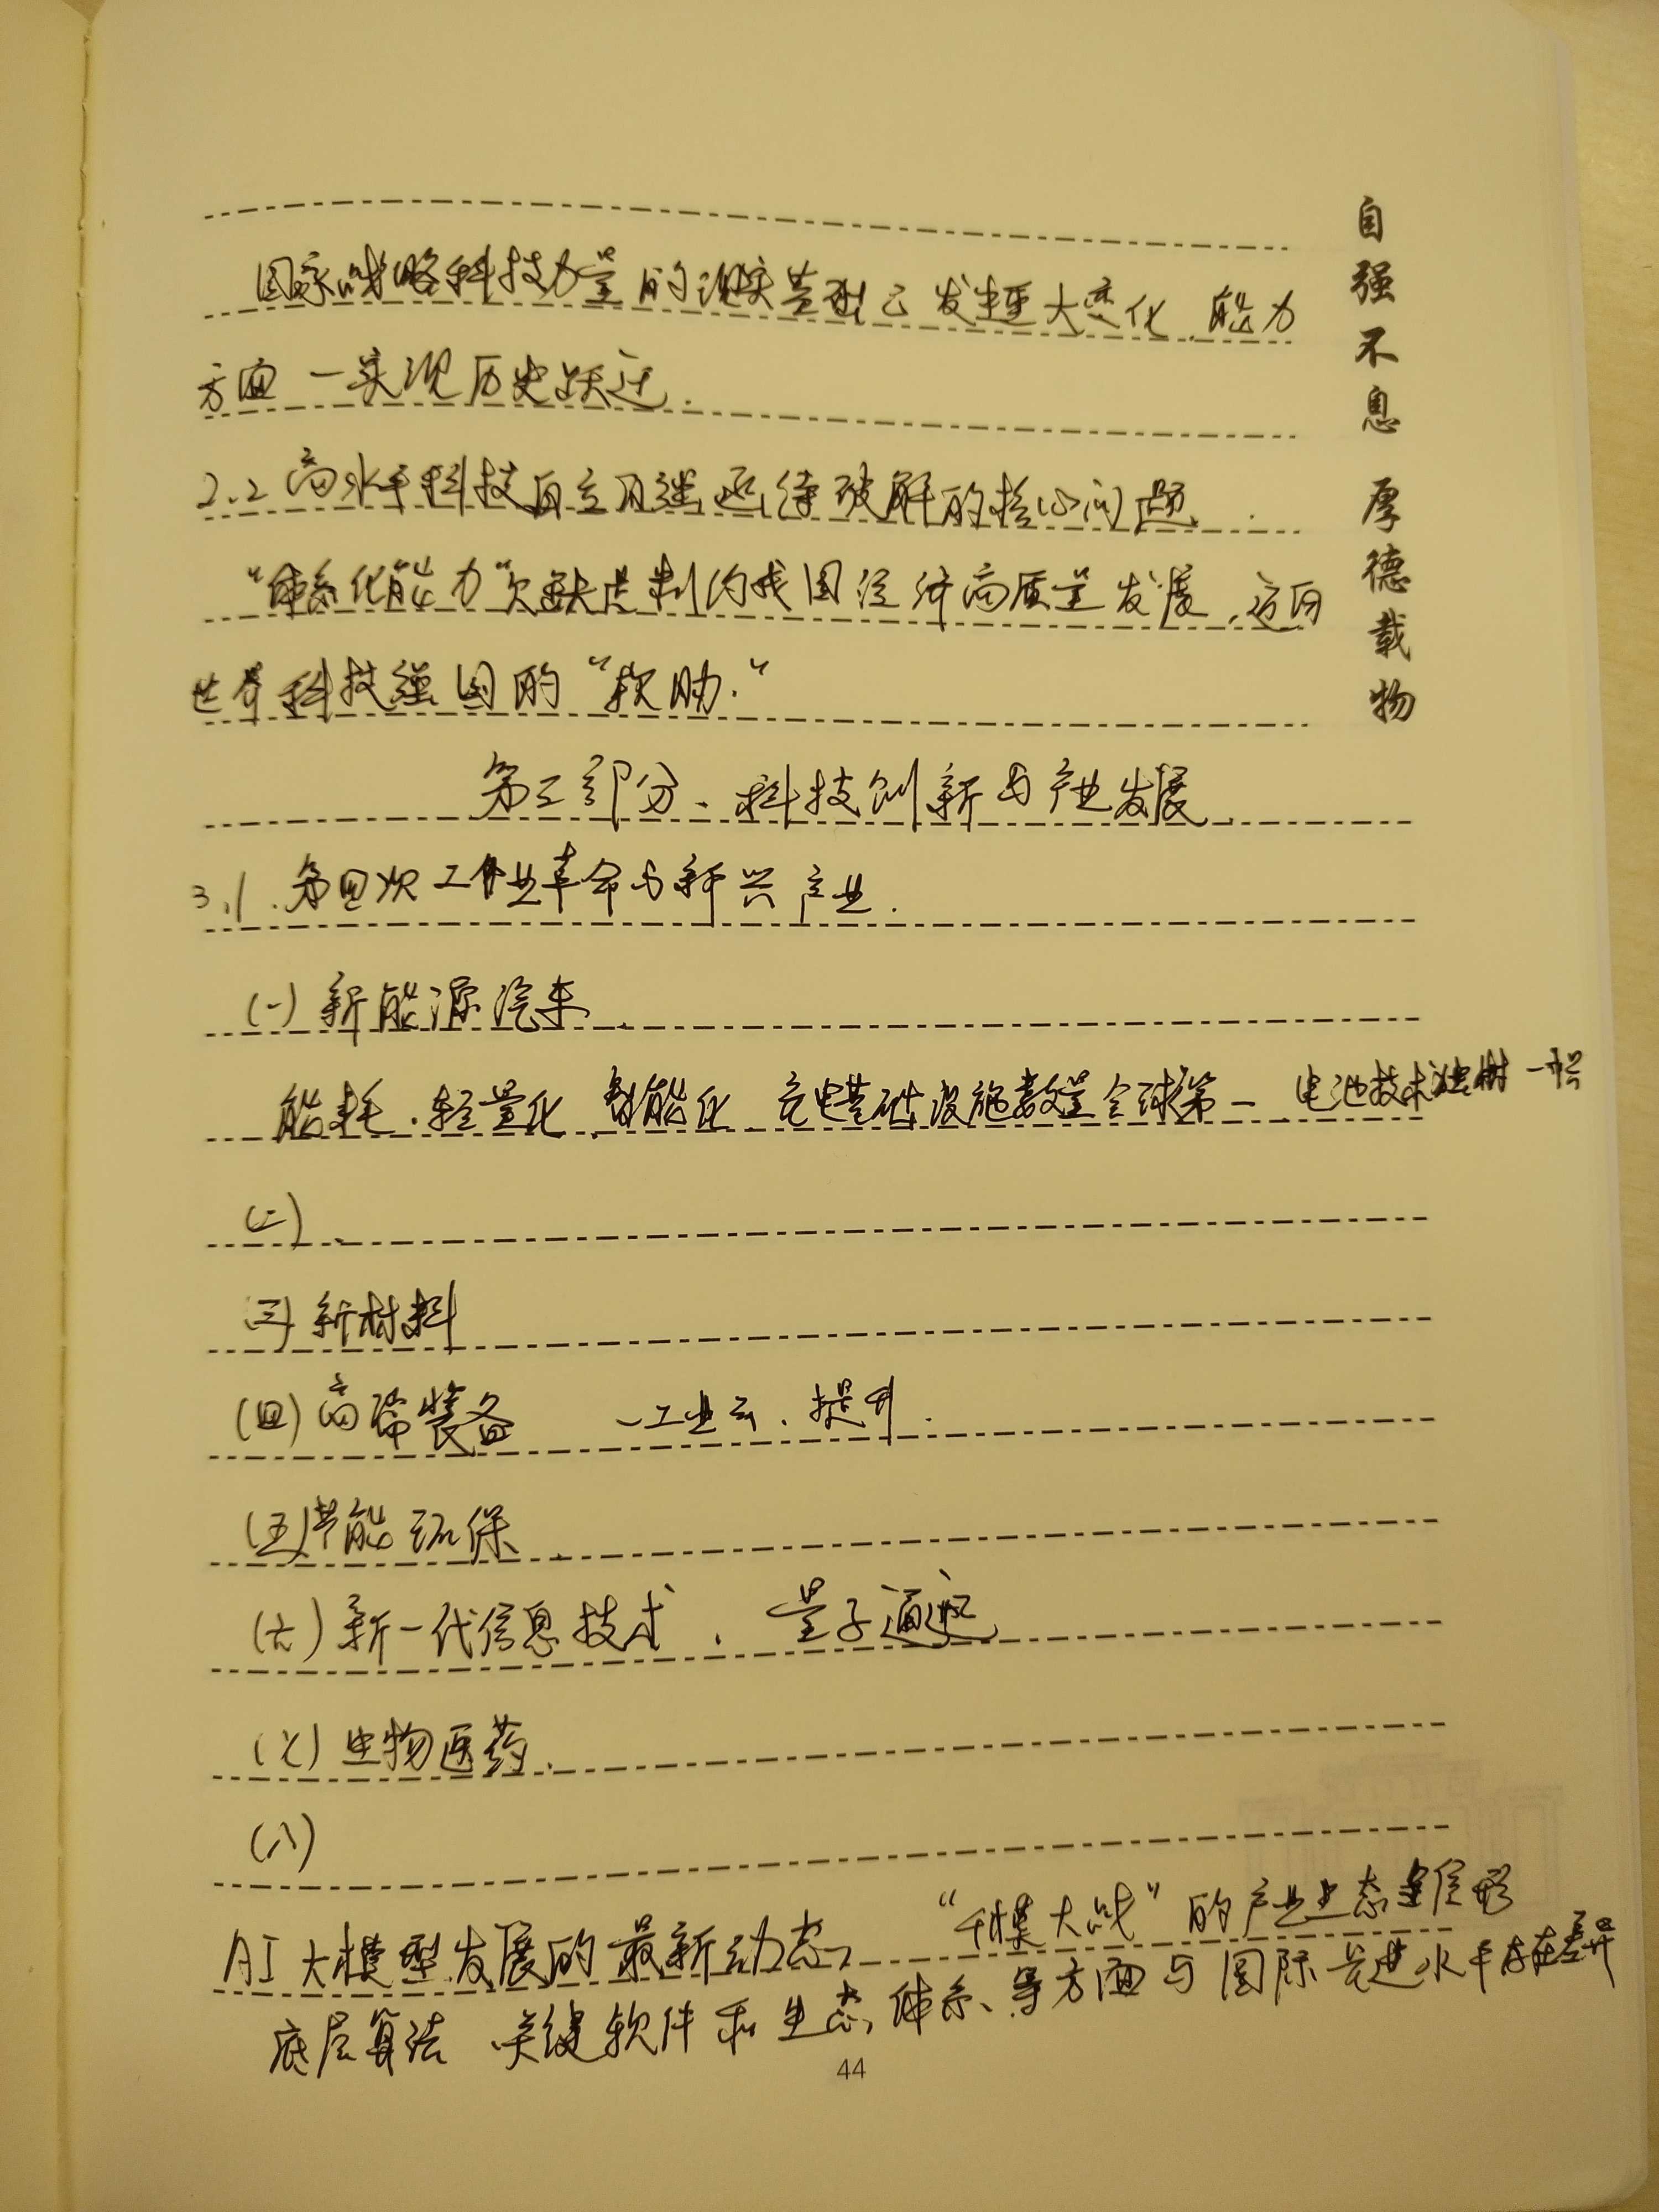 国家战略科技力量的现实基础已发生重大变化,能力
方面一实现历史跃迁.
2.2 高水平科技自立自强亟待破解的核心问题.
“体系化能力”欠缺是制约我国经济高质量发展,迈向
世界科技强国的“软肋.”
第三部分、科技创新与产业发展.
3.1.第四次工业革命与新兴产业.
(一)新能源汽车.
能耗.轻量化.智能化.充电基础设施数量全球第一 电池技术独树一帜
(二).
(三)新材料
(四)高端装备 —工业云、提升.
(五)节能环保.
(六)新一代信息技术. 量子通讯
(七)生物医药.
(八)
AI大模型发展的最新动态, “千模大战”的产业生态雏形
底层算法 关键软件和生态体系、等方面与国际先进水平存在差异
44
自强不息 厚德载物